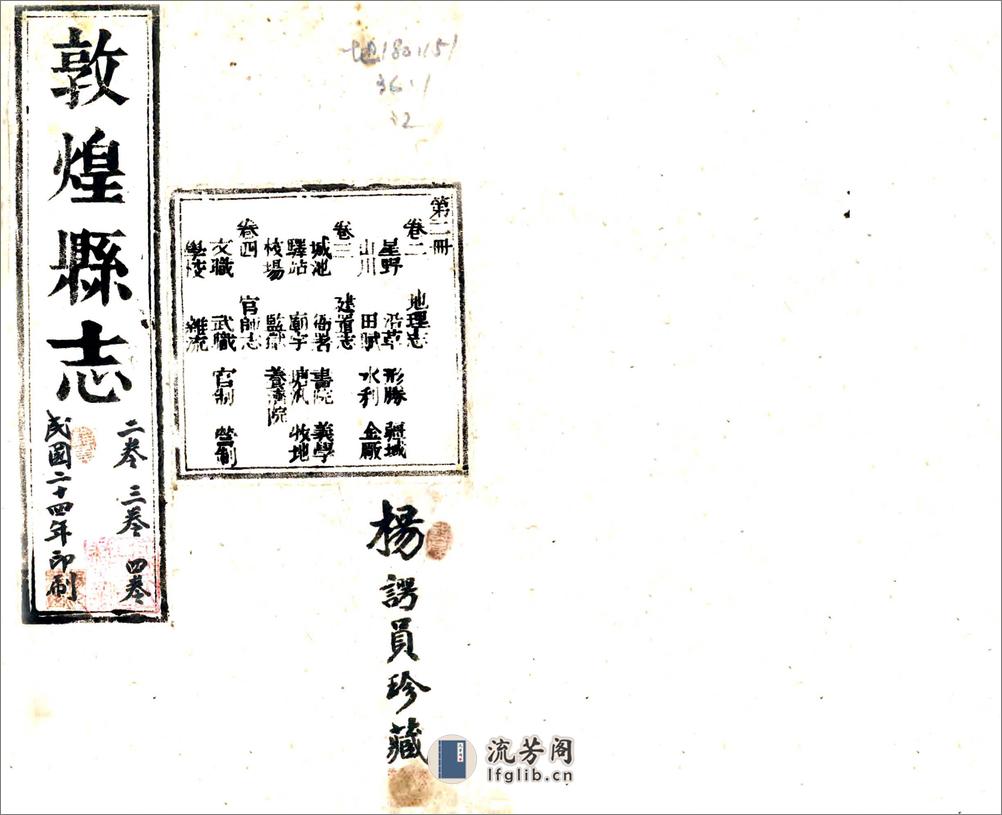 敦煌縣志
二卷 三卷 四卷
民國二十四年印制
第二冊
卷二 地理志
星野 沿革 形勝 疆域
山川 田賦 水利 金廠
卷三 建置志
城池 衙署 書院 義學
驛站 廟宇 塘汛 牧地
校場 監獄 養濟院
卷四 官師志
文職 武職 官制 營制
學校 雜流
楊諤員珍藏
流芳阁
lfglib.cn